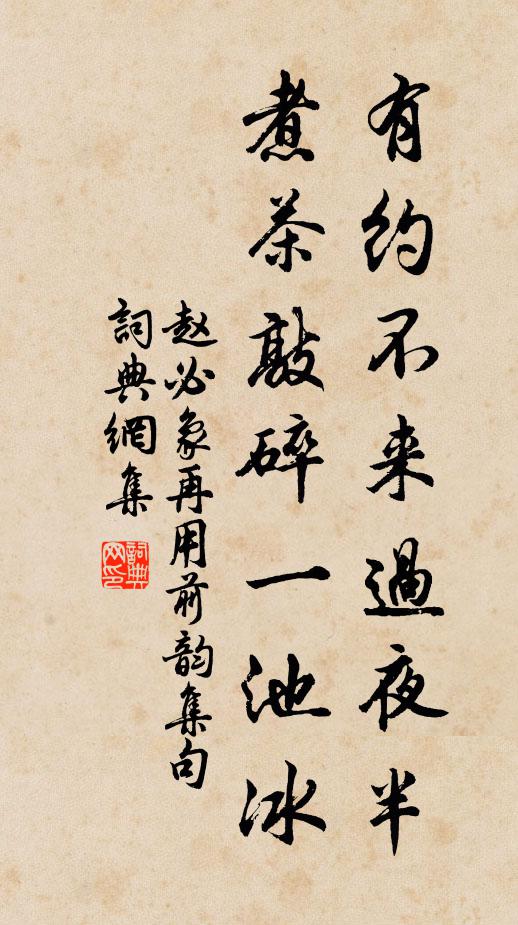 有约不来過夜半
煮茶敲碎一池冰
赵必象再用前韵集句
詞典網集
詞典网印